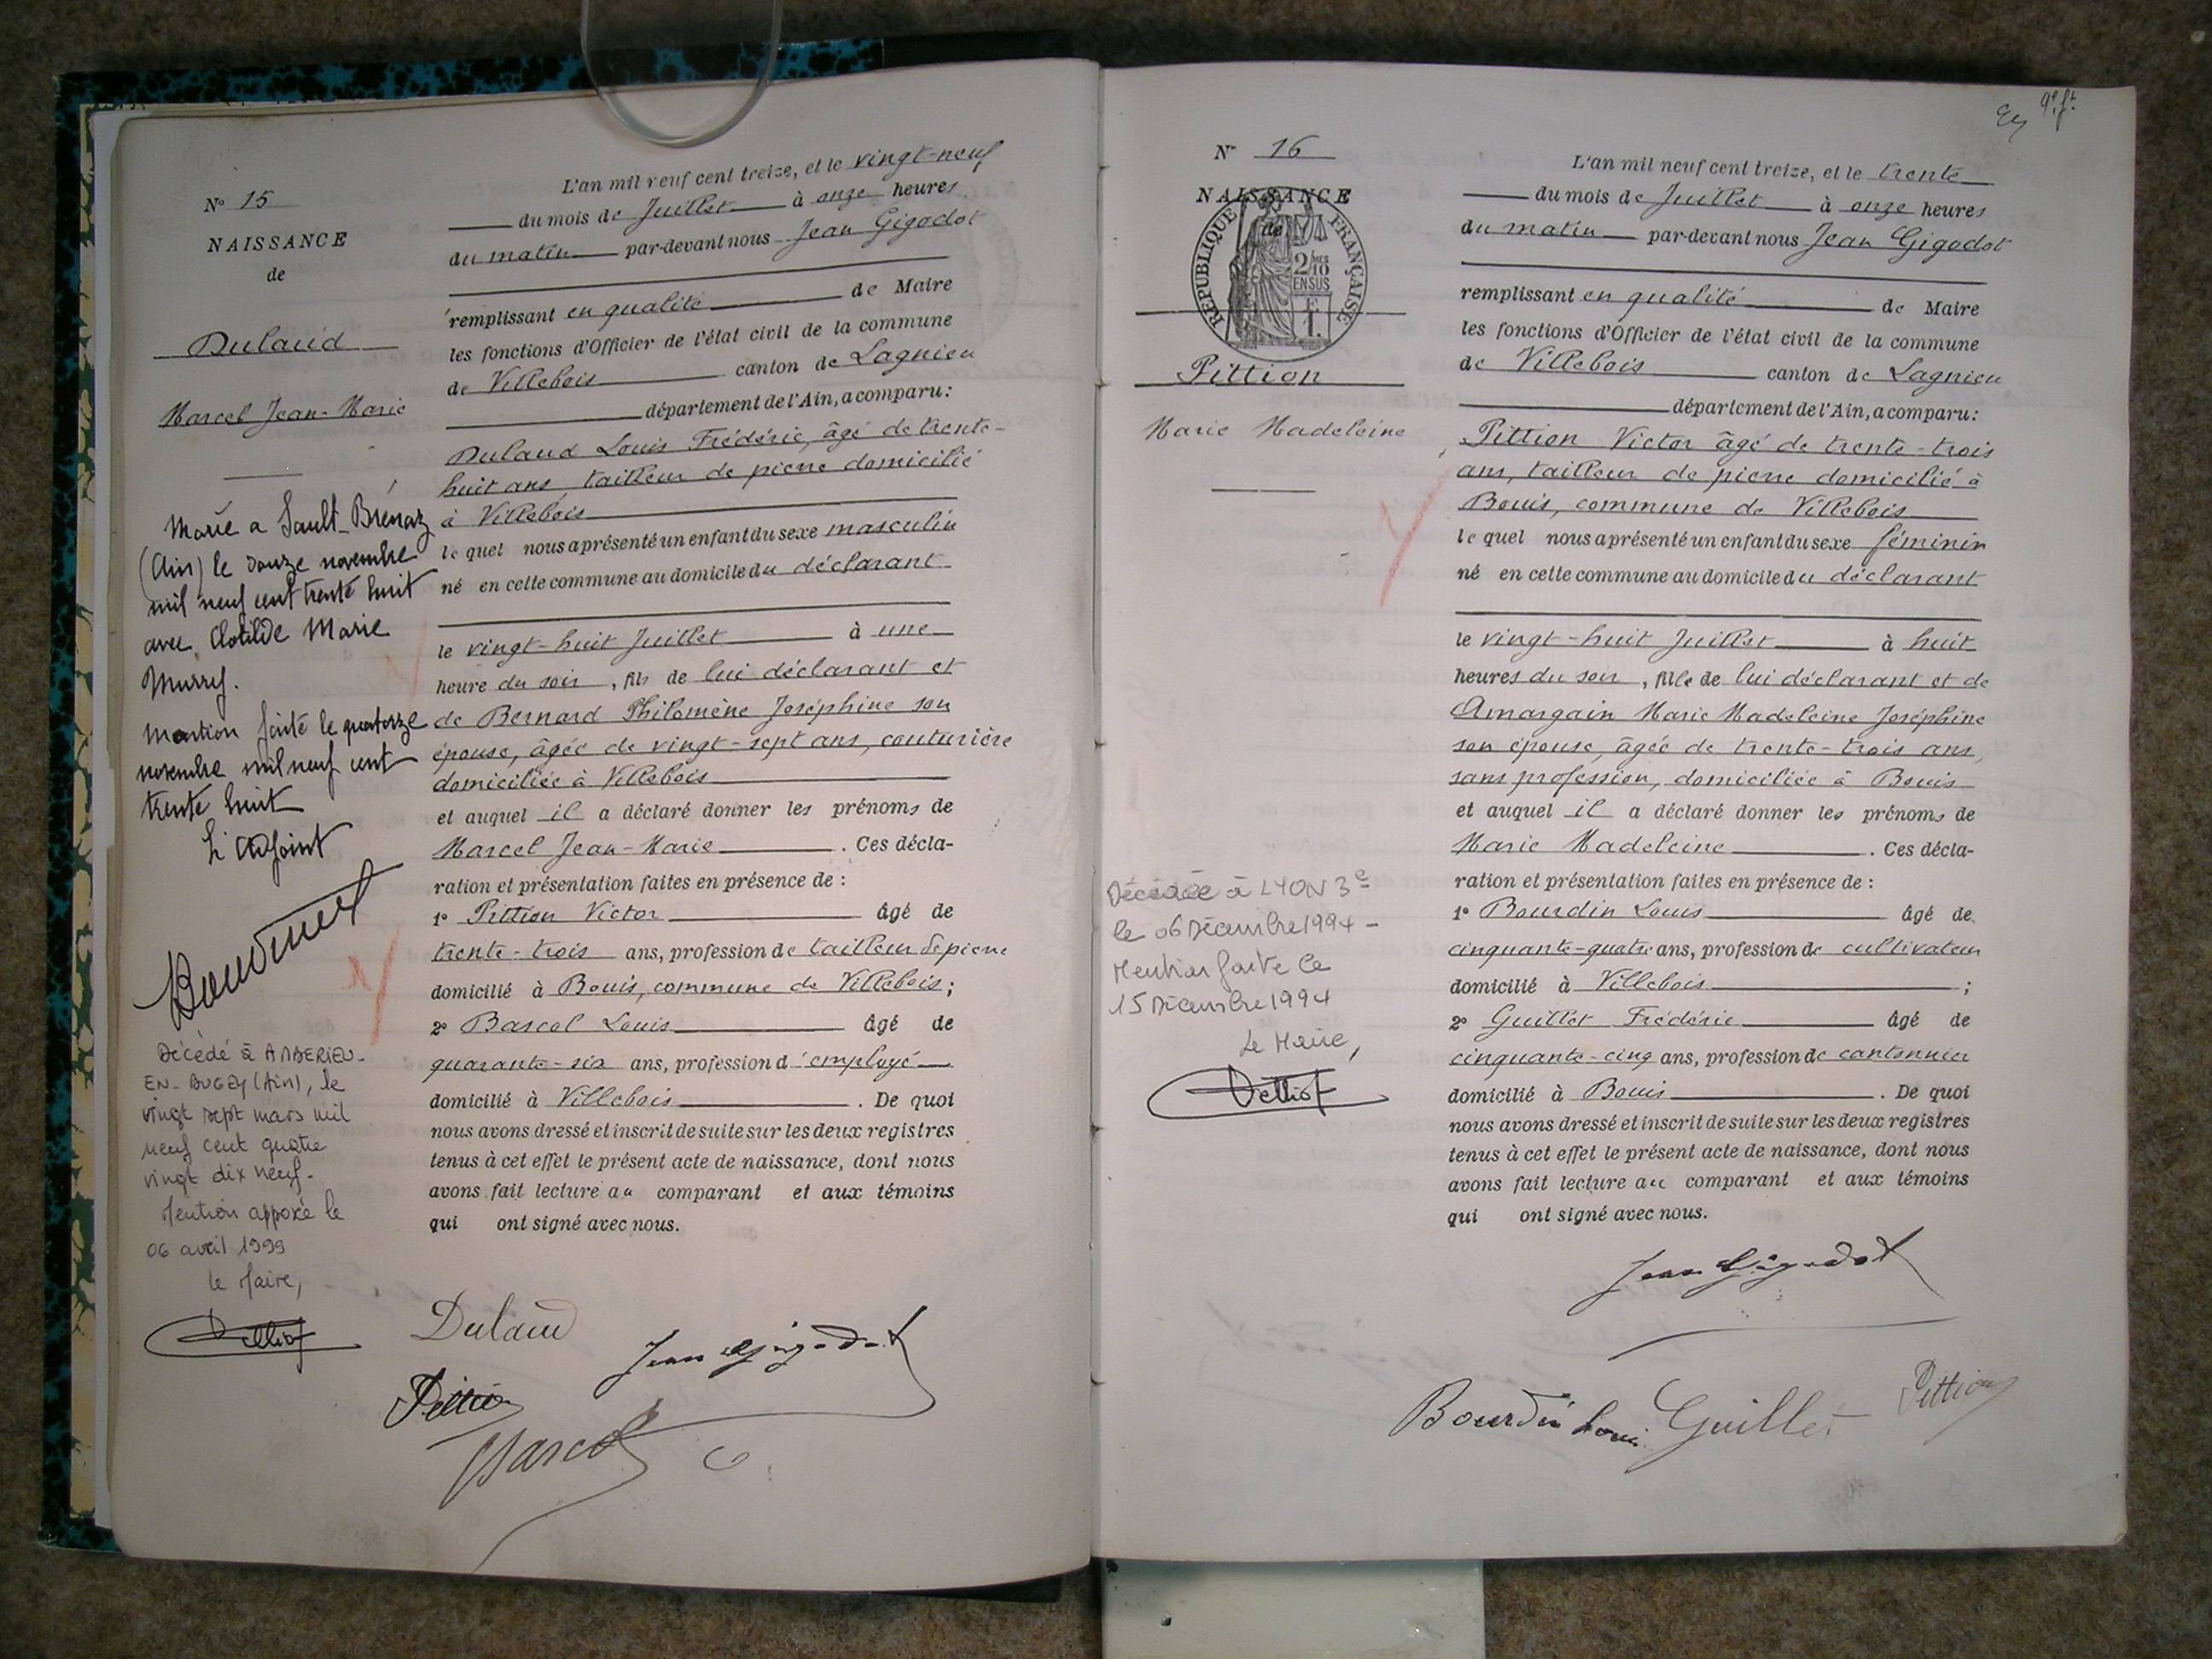 N° 15
NAISSANCE
de
Dulaud
Marcel Jean-Marie
Marié a Sault-Brénaz
(Ain) le douze novembre
mil neuf cent trente huit
avec Clotilde Marie
Murry.
Mention faite le quatorze
novembre mil neuf cent
trente huit
L'Adjoint
Décédé à AMBERIEU-
EN-BUGEY (Ain), le
vingt sept mars mil
neuf cent quatre
vingt dix neuf.
Mention apposée le
06 avril 1999
le Maire,
L'an mil neuf cent treize, et le vingt-neuf
du mois de Juillet à onze heures
du matin par-devant nous Jean Gigodot
remplissant en qualité de Maire
les fonctions d'Officier de l'état civil de la commune
de Villebois canton de Lagnieu
département de l'Ain, a comparu:
Dulaud Louis Frédéric, âgé de trente-
huit ans tailleur de pierre domicilié
à Villebois
le quel nous a présenté un enfant du sexe masculin
né en cette commune au domicile du déclarant
le vingt-huit Juillet à une
heure du soir, fils de lui déclarant et
de Bernard Philomène Joséphine son
épouse, âgée de vingt-sept ans, couturière
domiciliée à Villebois
et auquel il a déclaré donner les prénoms de
Marcel Jean-Marie. Ces décla-
ration et présentation faites en présence de :
1° Pittion Victor âgé de
trente-trois ans, profession de tailleur de pierre
domicilié à Bouis, commune de Villebois;
2° Bascol Louis âgé de
quarante-six ans, profession d'employé
domicilié à Villebois. De quoi
nous avons dressé et inscrit de suite sur les deux registres
tenus à cet effet le présent acte de naissance, dont nous
avons fait lecture au comparant et aux témoins
qui ont signé avec nous.
Dulaud
Jean Gigodot
Pittion
Bascol
N° 16
NAISSANCE
de
REPUBLIQUE FRANÇAISE
2/10
EN SUS
Pittion
Marie Madeleine
Décédée à LYON 3e
le 06 Décembre 1994 -
Mention faite le
15 Décembre 1994
Le Maire,
L'an mil neuf cent treize, et le trente
du mois de Juillet à onze heures
du matin par-devant nous Jean Gigodot
remplissant en qualité de Maire
les fonctions d'Officier de l'état civil de la commune
de Villebois canton de Lagnieu
département de l'Ain, a comparu:
Pittion Victor âgé de trente-trois
ans, tailleur de pierre domicilié à
Bouis, commune de Villebois
le quel nous a présenté un enfant du sexe féminin
né en cette commune au domicile du déclarant
le vingt-huit Juillet à huit
heures du soir, fille de lui déclarant et de
Amargain Marie Madeleine Joséphine
son épouse, âgée de trente-trois ans,
sans profession, domiciliée à Bouis
et auquel il a déclaré donner les prénoms de
Marie Madeleine. Ces décla-
ration et présentation faites en présence de :
1° Bourdin Louis âgé de
cinquante-quatre ans, profession de cultivateur
domicilié à Villebois ;
2° Guillet Frédéric âgé de
cinquante-cinq ans, profession de cantonnier
domicilié à Bouis. De quoi
nous avons dressé et inscrit de suite sur les deux registres
tenus à cet effet le présent acte de naissance, dont nous
avons fait lecture au comparant et aux témoins
qui ont signé avec nous.
Jean Gigodot
Bourdin Louis Guillet Pittion